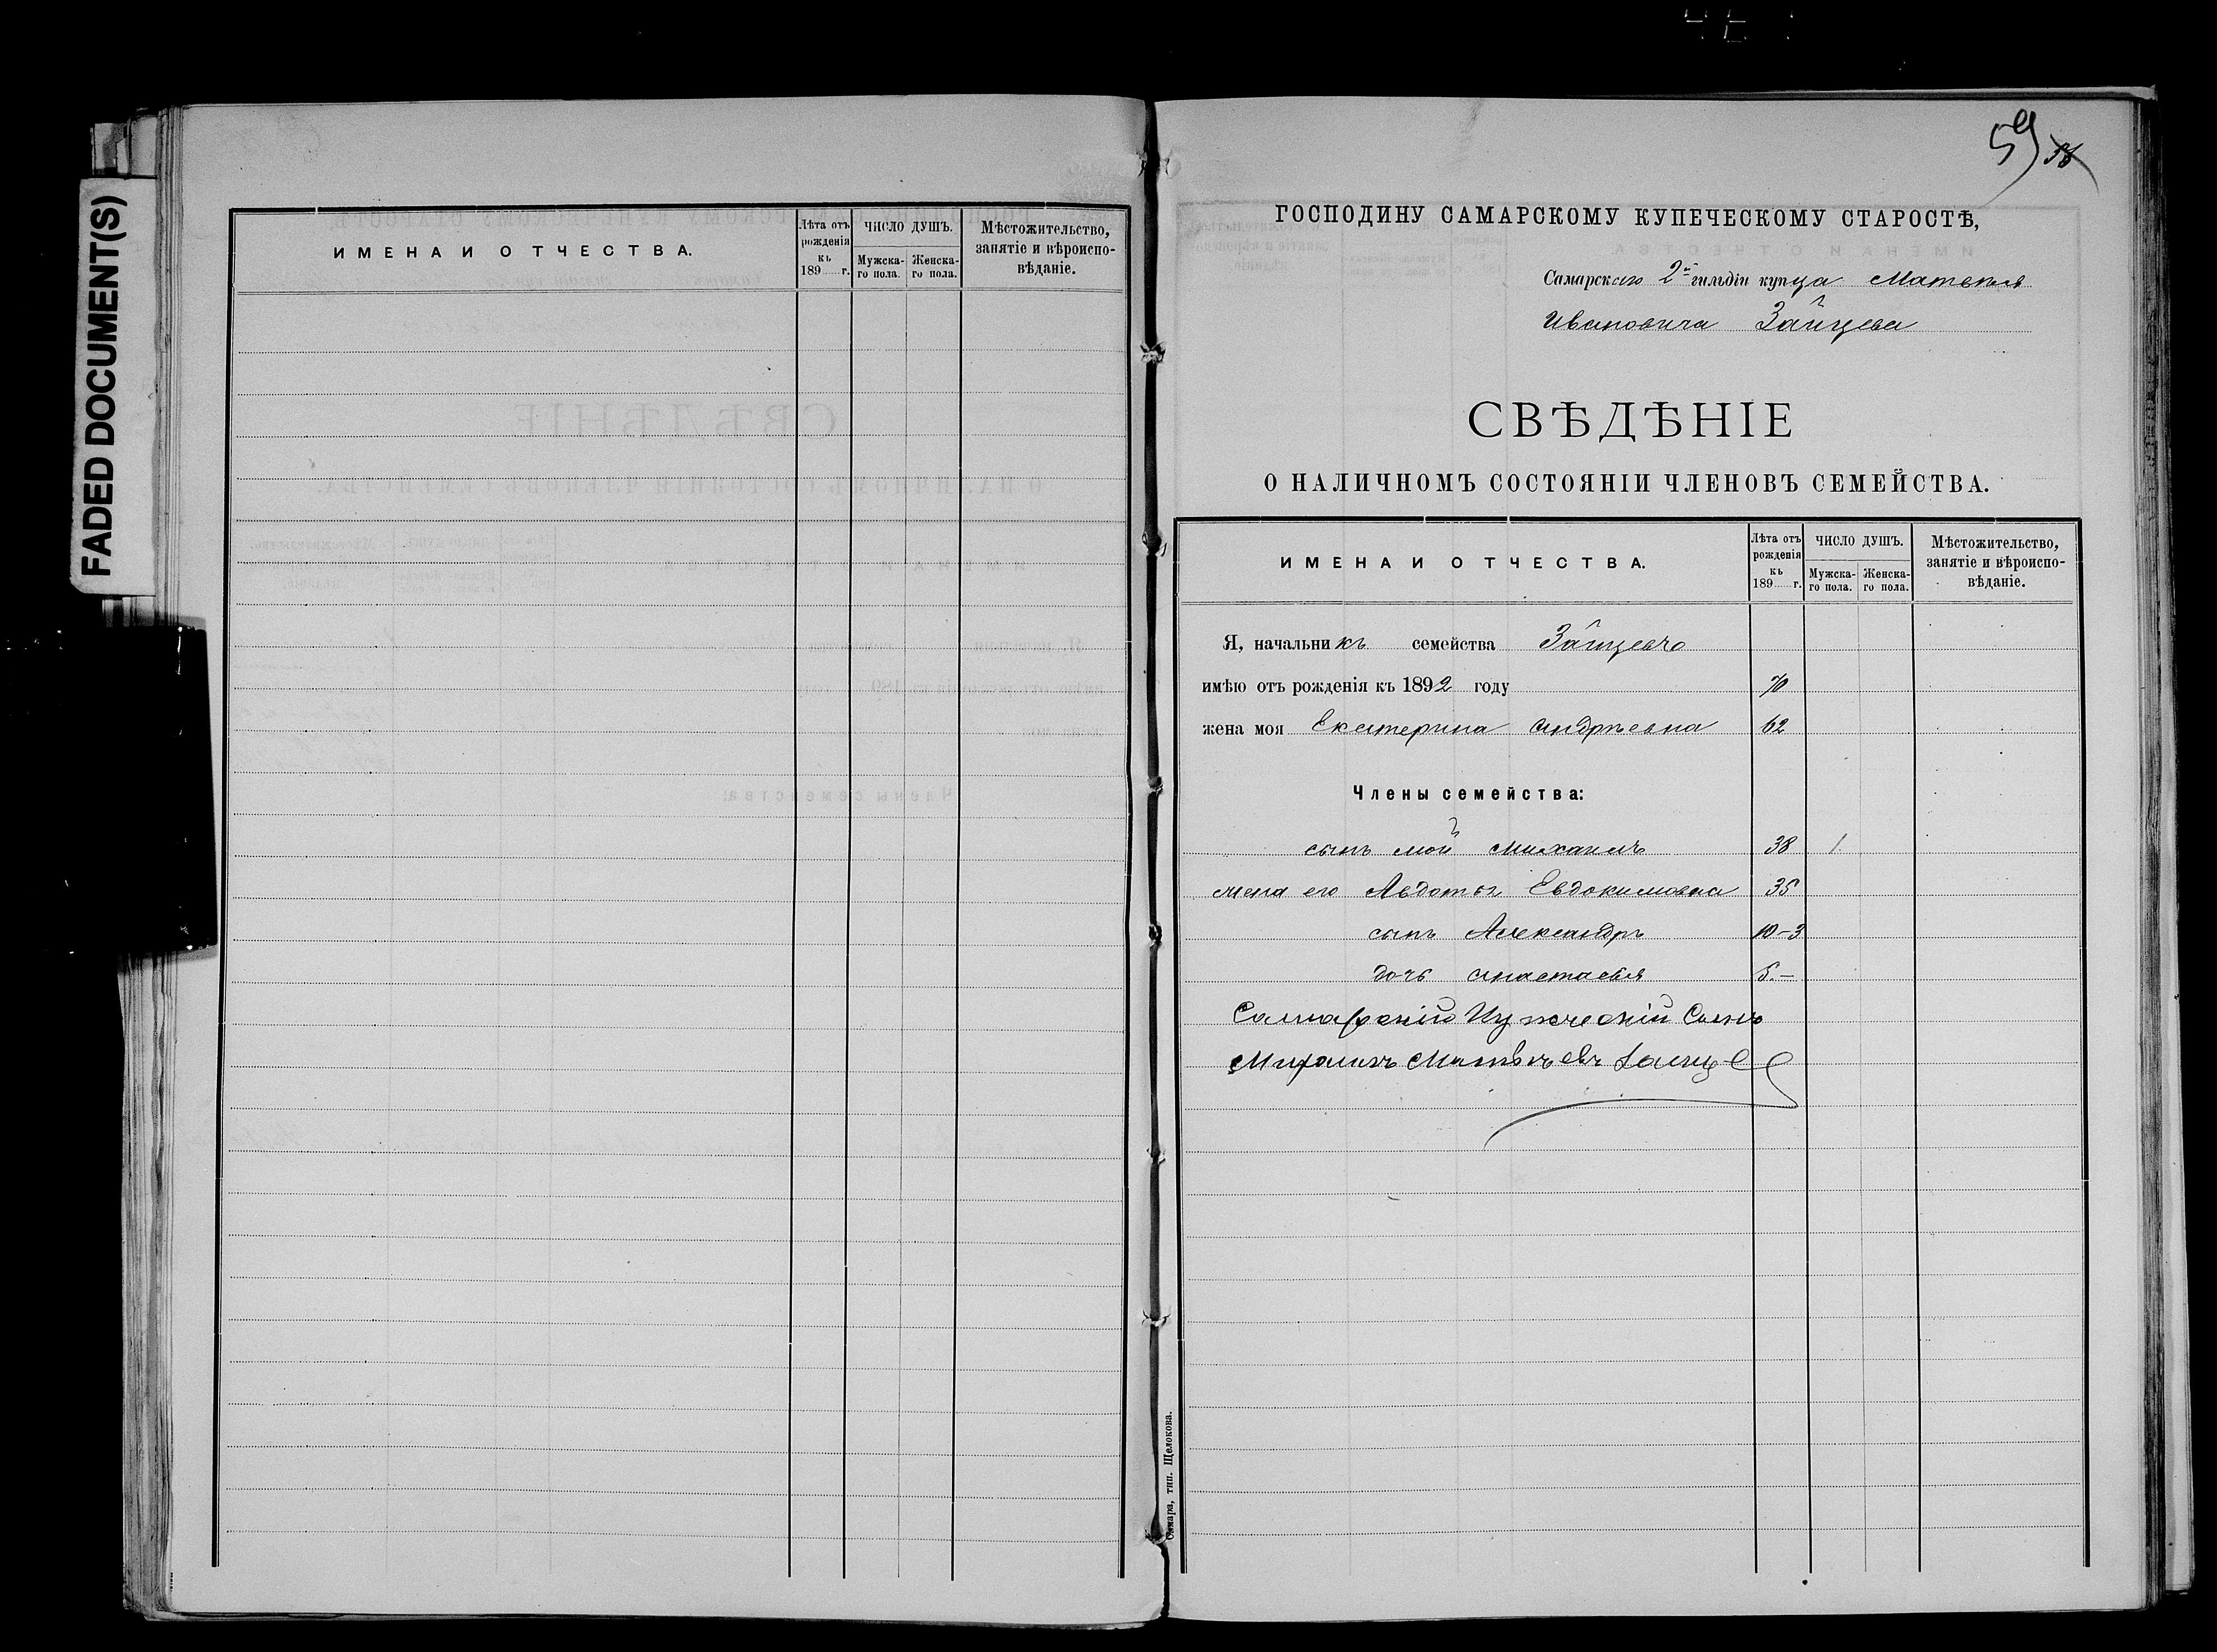 FADED DOCUMENT(S)
ИМЕНА И ОТЧЕСТВА.
Лѣта отъ рожденія къ 189 г.
ЧИСЛО ДУШЪ.
Мужска-го пола.
Женска-го пола.
Мѣстожительство, занятіе и вѣроиспо-вѣданіе.
59 58
ГОСПОДИНУ САМАРСКОМУ КУПЕЧЕСКОМУ СТАРОСТѢ,
Самарскаго 2й гильдіи купца Матвѣя
Ивановича Зайцева
СВѢДѢНІЕ
О НАЛИЧНОМЪ СОСТОЯНІИ ЧЛЕНОВЪ СЕМЕЙСТВА.
ИМЕНА И ОТЧЕСТВА.
Лѣта отъ рожденія къ 189 г.
ЧИСЛО ДУШЪ.
Мужска-го пола.
Женска-го пола.
Мѣстожительство, занятіе и вѣроиспо-вѣданіе.
Я, начальникъ семейства Зайцевъ
имѣю отъ рожденія къ 1892 году 70
жена моя Екатерина Андрѣевна 62
Члены семейства:
сынъ мой Михаилъ 38 1.
жена его Авдотья Евдокимовна 35
сынъ Александръ 10-3
дочь Анастасія 5.-
Самарскій Купческій Сынъ
Михаилъ Матвѣевъ Зайце
Самара, тип. Щелокова.